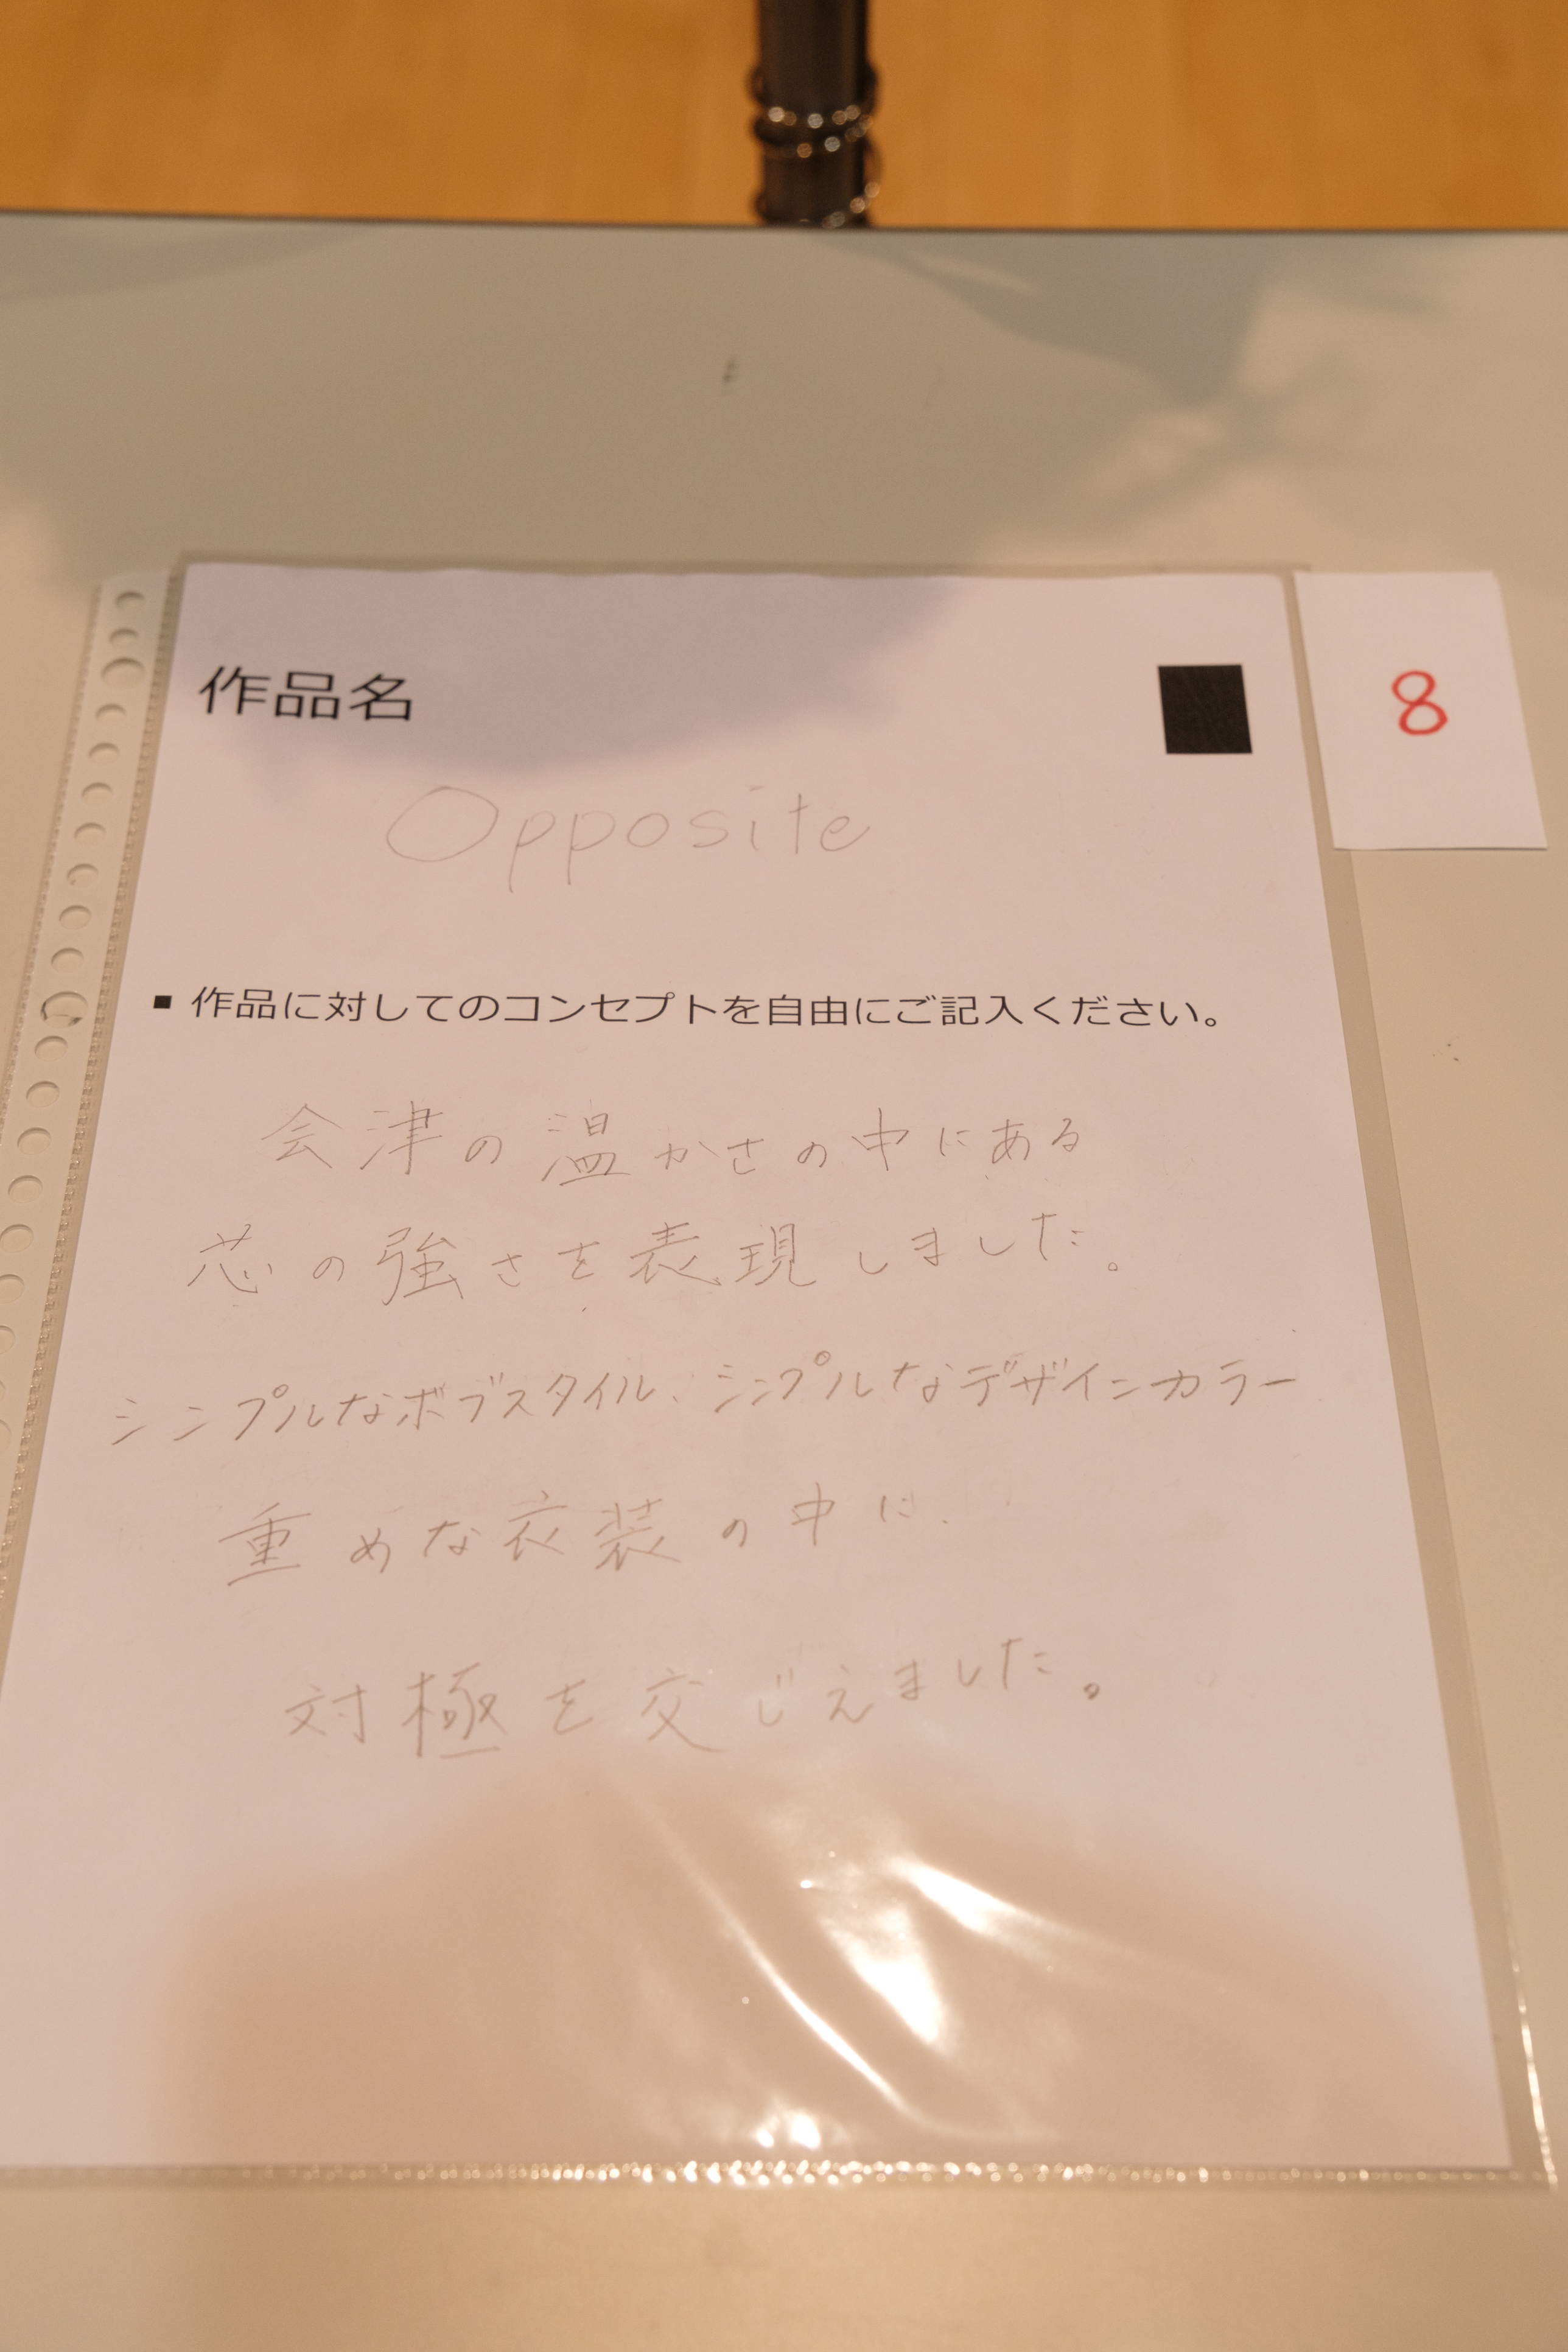 作品名
8
Opposite
▪ 作品に対してのコンセプトを自由にご記入ください。
会津の温かさの中にある
芯の強さを表現しました。
シンプルなボブスタイル、シンプルなデザインカラー
重めな衣装の中に、
対極を交じえました。